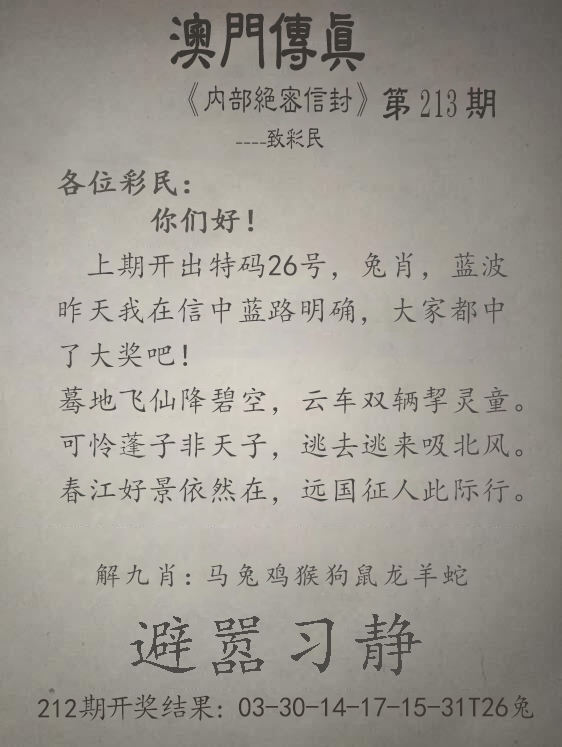 澳門傳眞
《内部絕密信封》第213期
----致彩民
各位彩民：
你们好！
上期开出特码26号，兔肖，蓝波
昨天我在信中蓝路明确，大家都中
了大奖吧！
蓦地飞仙降碧空，云车双辆挈灵童。
可怜蓬子非天子，逃去逃来吸北风。
春江好景依然在，远国征人此际行。
解九肖：马兔鸡猴狗鼠龙羊蛇
避嚣习静
212期开奖结果：03-30-14-17-15-31T26兔